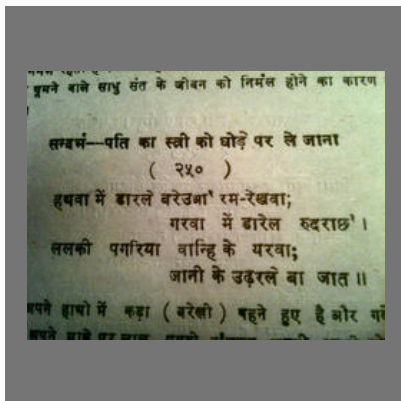 घूमने वाले साधु संत के जीवन को निर्मल होने का कारण
सन्दर्भ—पति का स्त्री को घोड़े पर ले जाना
( २५० )
हथवा में डारले बरेउवा¹ रम-रेखवा;
गरवा में डारेल रुदराछ¹ ।
ललकी पगरिया वान्हि के यरवा;
जानी के उढ़रले बा जात ॥
अपने हाथो में कड़ा ( बरेखी ) पहने हुए है और गले